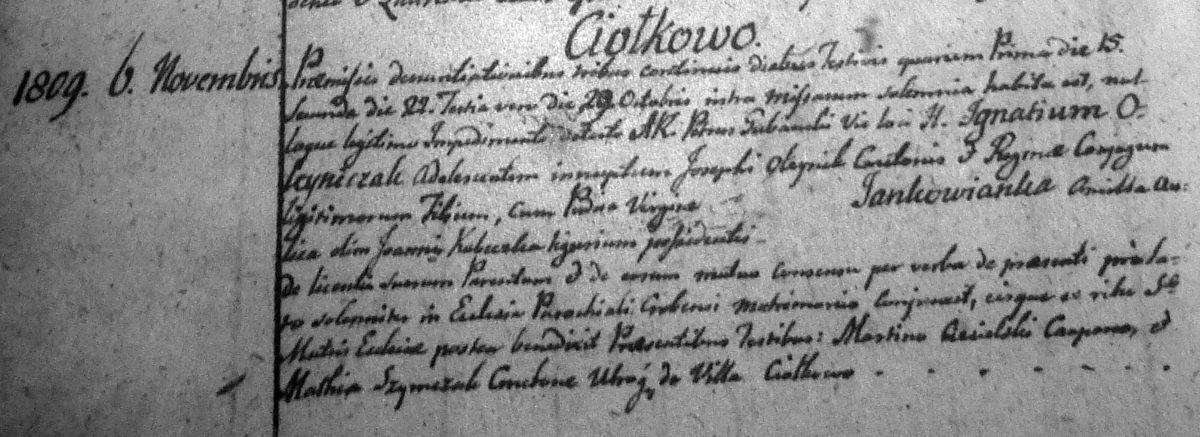 Ciołkowo.
1809. 6. Novembris
Præmissis denunciationibus tribus continuis diebus Festivis quarum Prima die 15.
Secunda die 22. Tertia vero die 29 Octobris intra Missarum solemnia habita est, nul-
loque legitimo Impedimento detecto AR. Petrus Vic loci H. Ignatium O-
leyniczak Adolescentem Josephi Oleynik Cmetonis & Reginæ Conjugum
legitimorum Filium, cum Pudica Virgine Jankowianka Ancilla au-
lica olim Joannis tigurium possidentis
de licentia suorum Parentum & de eorum mutuo consensu per verba de præsenti prola-
to solemniter in Ecclesia Parochiali Crobensi matrimonio conjunxit, eisque ex ritu Stæ
Matris Ecclesiæ postea benedixit Præsentibus Testibus: Martino Caupone, &
Mathia Szymczak Cmetone de Villa Ciołkowo - - - - - -